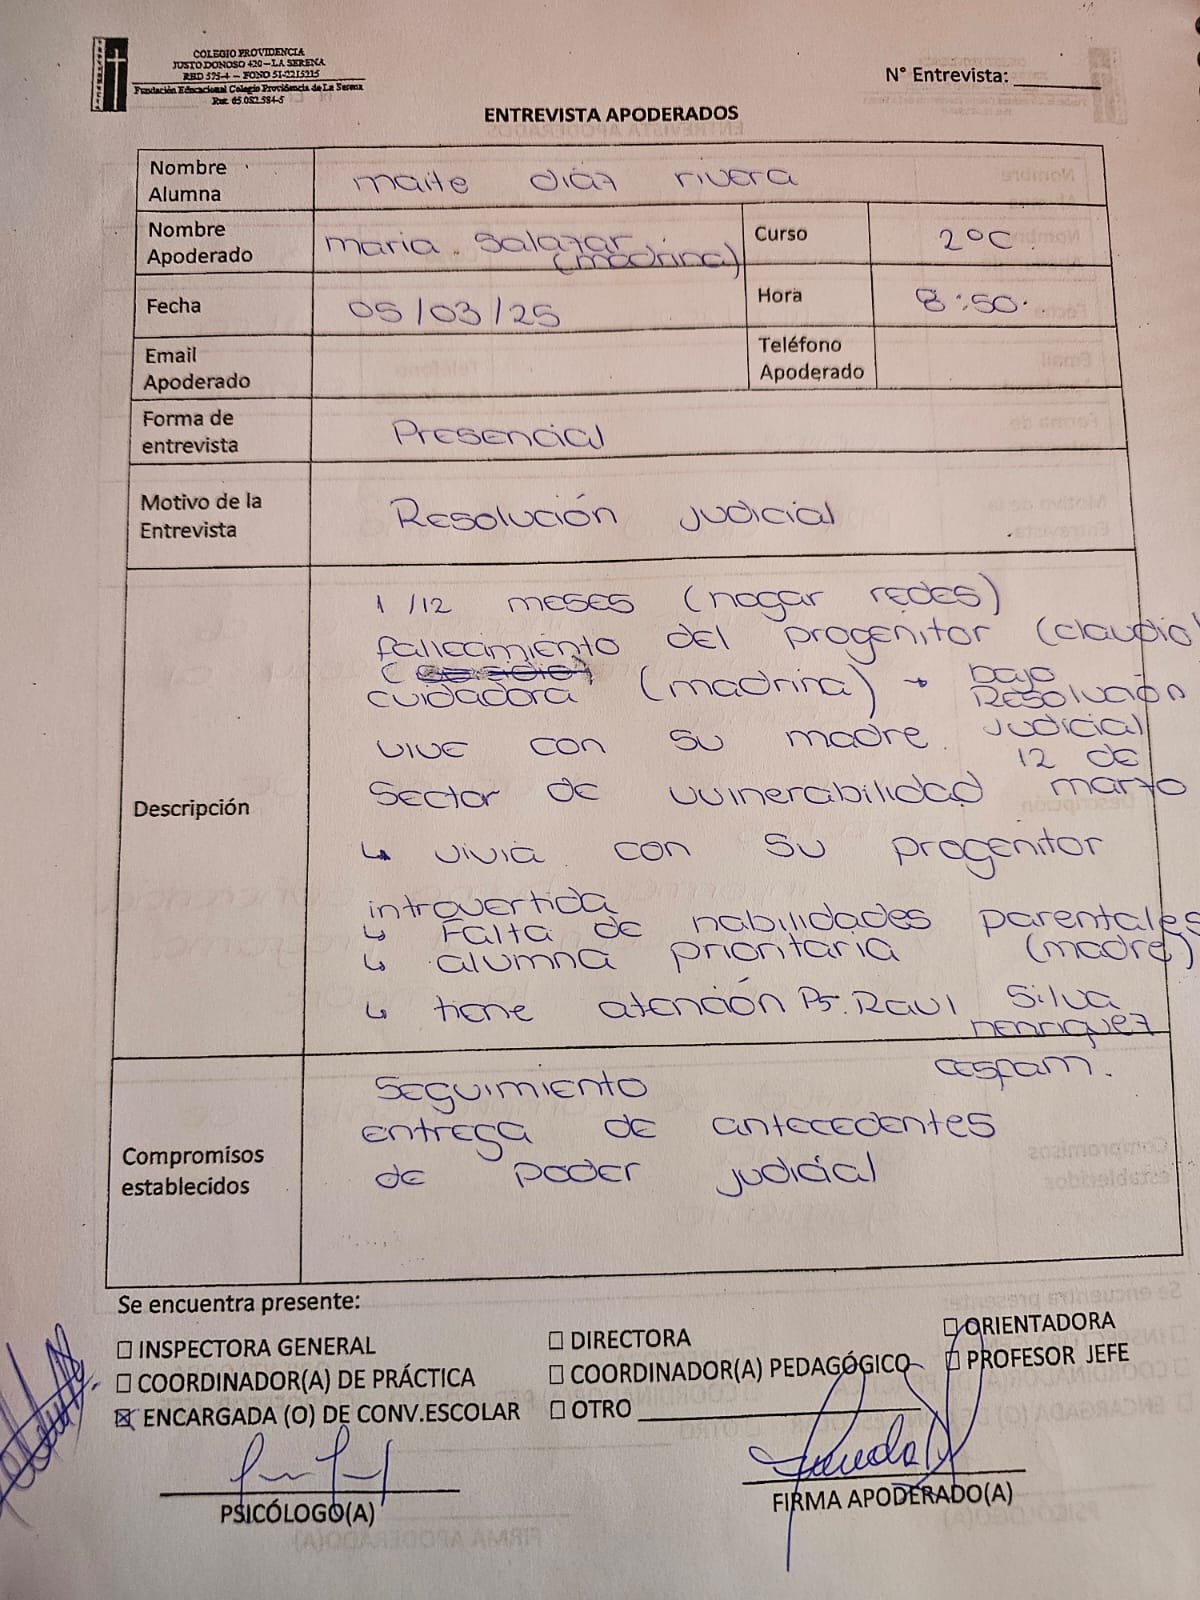 COLEGIO PROVIDENCIA
JUSTO DONOSO 420 – LA SERENA
RBD 575-4 – FONO 51-2215215
Fundación Educacional Colegio Providencia de La Serena
Rut: 65.082.584-5
N° Entrevista:
ENTREVISTA APODERADOS
Nombre Alumna
maite diaz rivera
Nombre Apoderado
maria. Salazar (madrina)
Curso
2°C
Fecha
05/03/25
Hora
8:50.
Email Apoderado
Teléfono Apoderado
Forma de entrevista
Presencial
Motivo de la Entrevista
Resolución judicial
Descripción
1/12 meses (hogar redes)
fallecimiento del progenitor (claudio)
cuidadora (madrina) → bajo Resolución judicial 12 de marzo
vive con su madre.
Sector de vulnerabilidad
↳ vivia con su progenitor
introvertida
↳ Falta de habilidades parentales (madre)
↳ alumna prioritaria
↳ tiene atención Ps. Raul Silva Henriquez cesfam.
Compromisos establecidos
Seguimiento
entrega de antecedentes
de poder judicial
Se encuentra presente:
☐ INSPECTORA GENERAL
☐ DIRECTORA
☐ ORIENTADORA
☐ COORDINADOR(A) DE PRÁCTICA
☐ COORDINADOR(A) PEDAGÓGICO
☐ PROFESOR JEFE
☒ ENCARGADA (O) DE CONV.ESCOLAR
☐ OTRO
PSICÓLOGO(A)
FIRMA APODERADO(A)